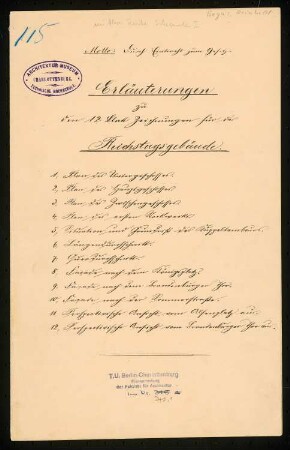 115
Motto: Durch Eintracht zum Gesetz.
ARCHITEKTUR MUSEUM
CHARLOTTENBURG
TECHNISCHE HOCHSCHULE
Erläuterungen
zu
den 12 Blatt Zeichnungen für das
Reichstagsgebäude.
1, Plan des Untergeschosses.
2, Plan des Hauptgeschosses.
3, Plan des Zwischengeschosses.
4, Plan des ersten Stockwerks.
5, Situation und Grundriss des
6, Längendurchschnitt.
7, Querdurchschnitt.
8, Façade nach dem Königsplatz.
9, Façade nach dem Brandenburger Thor.
10, Façade nach der Sommerstrasse.
11, Perspectivische Ansicht vom Alsenplatz aus.
12, Perspectivische Ansicht vom Brandenburger Thor aus.
T.U. Berlin-Charlottenburg
Plansammlung
der Fakultät für Architektur
Inv. Nr.